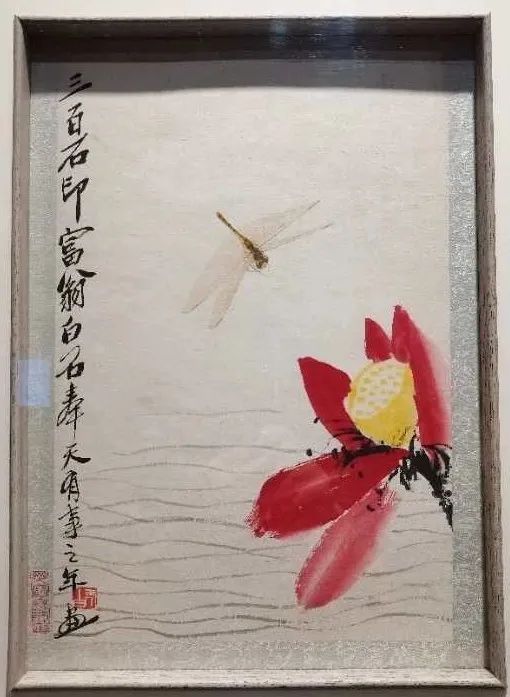 三百石印富翁白石奉天有事之年画